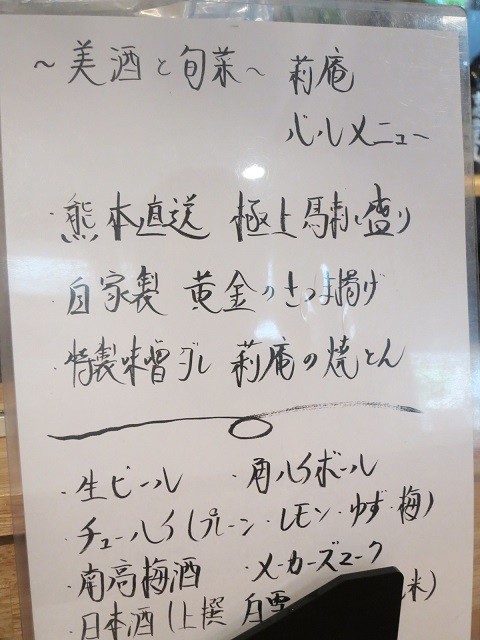 ～美酒と旬菜～ 莉庵
バルメニュー
・熊本直送 極上馬刺し盛り
・自家製 黄金のさつま揚げ
・特製味噌ダレ 莉庵の焼とん
・生ビール ・角ハイボール
・チューハイ(プレーン・レモン・ゆず・梅)
・南高梅酒 ・メーカーズマーク
・日本酒(上撰 白雪 米)